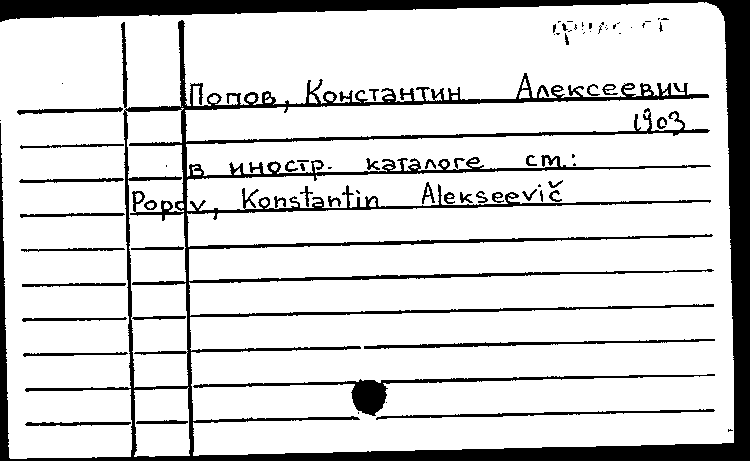 Попов, Константин Алексеевич
1903
в иностр. каталоге см.:
Popov, Konstantin Alekseevič